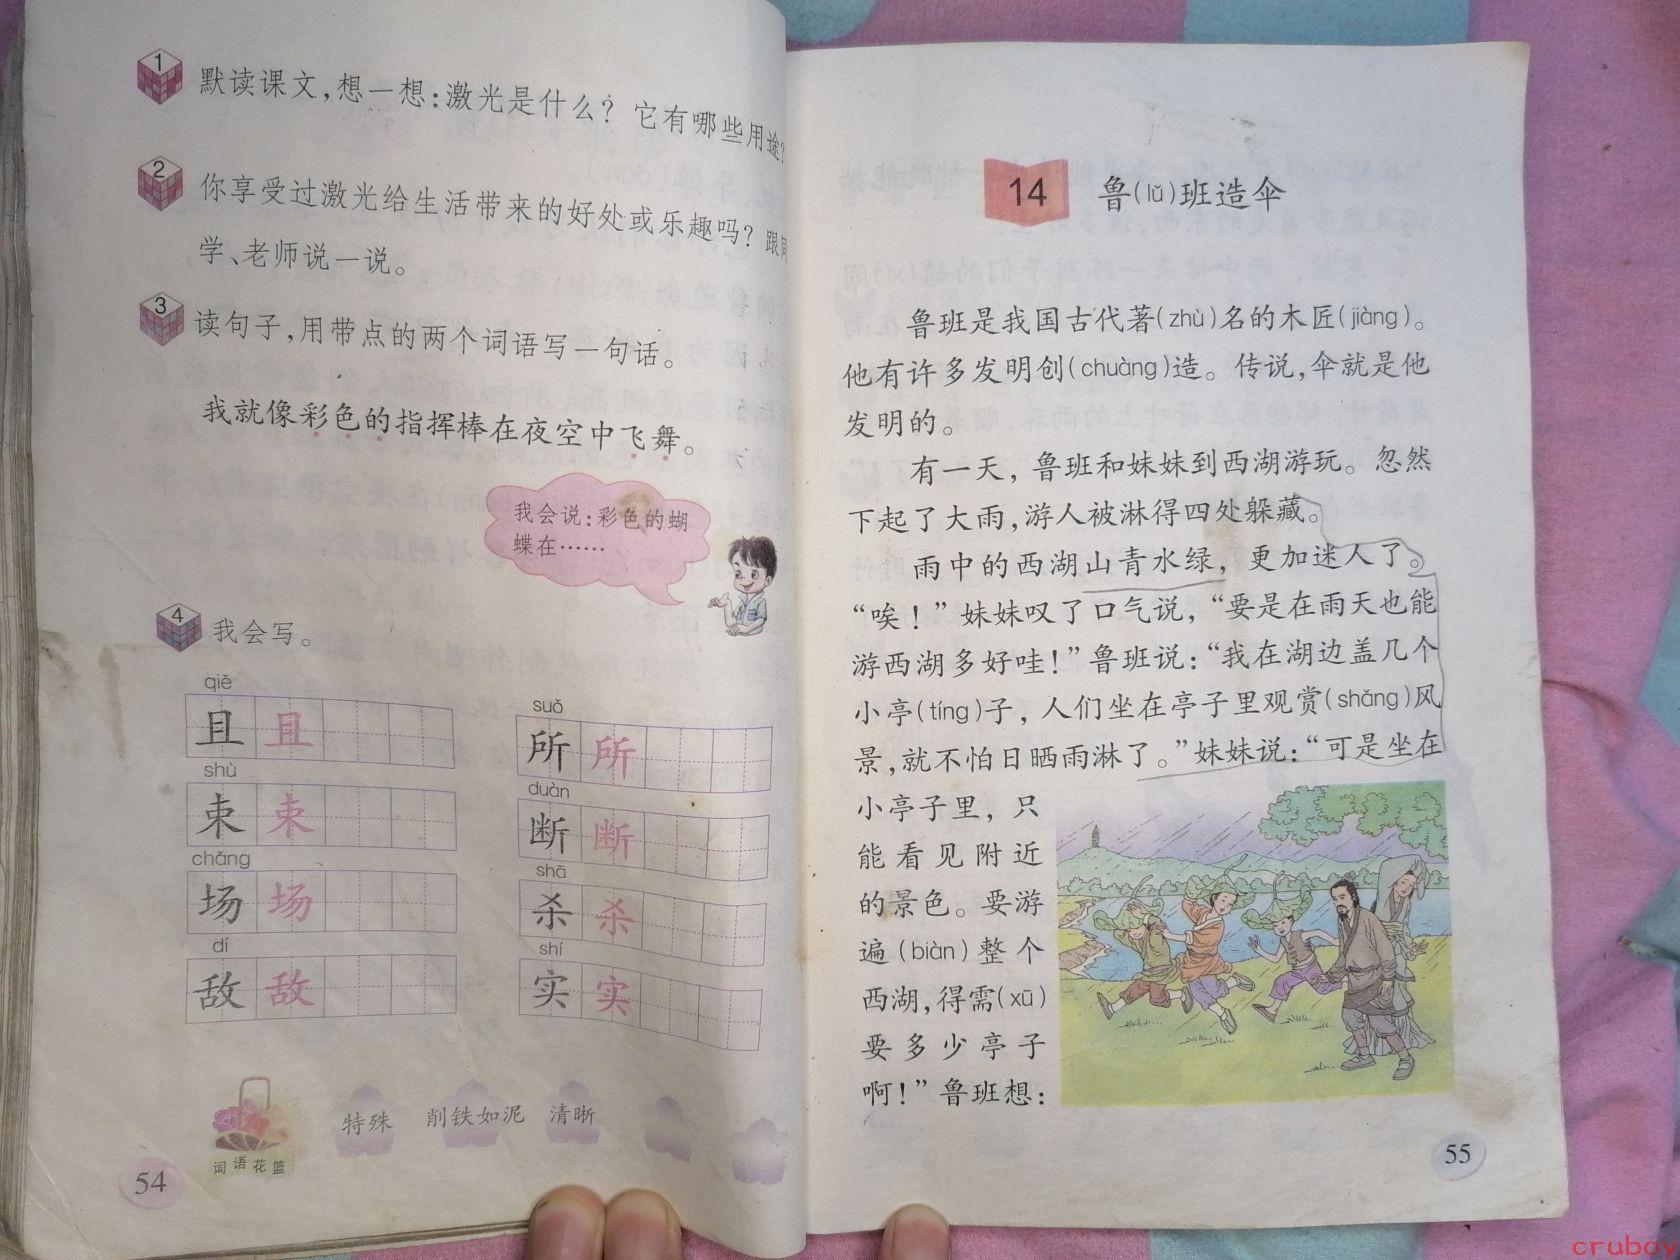 1
默读课文，想一想：激光是什么？它有哪些用途？
2
你享受过激光给生活带来的好处或乐趣吗？跟同
学、老师说一说。
3
读句子，用带点的两个词语写一句话。
我就像彩色的指挥棒在夜空中飞舞。
我会说：彩色的蝴
蝶在……
4
我会写。
qiě
且 且
suǒ
所 所
shù
束 束
duàn
断 断
chǎng
场 场
shā
杀 杀
dí
敌 敌
shí
实 实
词语花篮
特殊 削铁如泥 清晰
54
14 鲁(lǔ)班造伞
鲁班是我国古代著(zhù)名的木匠(jiàng)。
他有许多发明创(chuàng)造。传说，伞就是他
发明的。
有一天，鲁班和妹妹到西湖游玩。忽然
下起了大雨，游人被淋得四处躲藏。
雨中的西湖山青水绿，更加迷人了。
“唉！”妹妹叹了口气说，“要是在雨天也能
游西湖多好哇！”鲁班说：“我在湖边盖几个
小亭(tíng)子，人们坐在亭子里观赏(shǎng)风
景，就不怕日晒雨淋了。”妹妹说：“可是坐在
小亭子里，只
能看见附近
的景色。要游
遍(biàn)整个
西湖，得需(xū)
要多少亭子
啊！”鲁班想：
55
cruboy